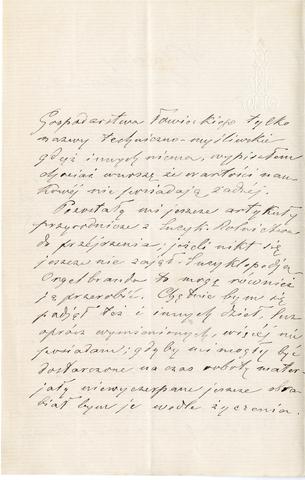 Gospodarstwa Łowieckiego tylko
nazwy techniczno-myśliwskie
gdyż innych niema, wypisałem
chociaż wnoszę że wartości nau-
kowej nie posiadają żadnej.
Pozostały mi jeszcze artykuły
przyrodnicze z Encykl. Rolnictwa
do przejrzenia; jeśli nikt się
jeszcze nie zajął Encyklopedją
Orgelbranda to mogę również
ją przerobić. Chętnie bym się
podjął też i innych dzieł, lecz
oprócz wymienionych, więcej nie
posiadam; gdyby mi mogły być
dostarczone na czas roboty mater-
jały niewyczerpane jeszcze obra-
biał bym je wedle życzenia.